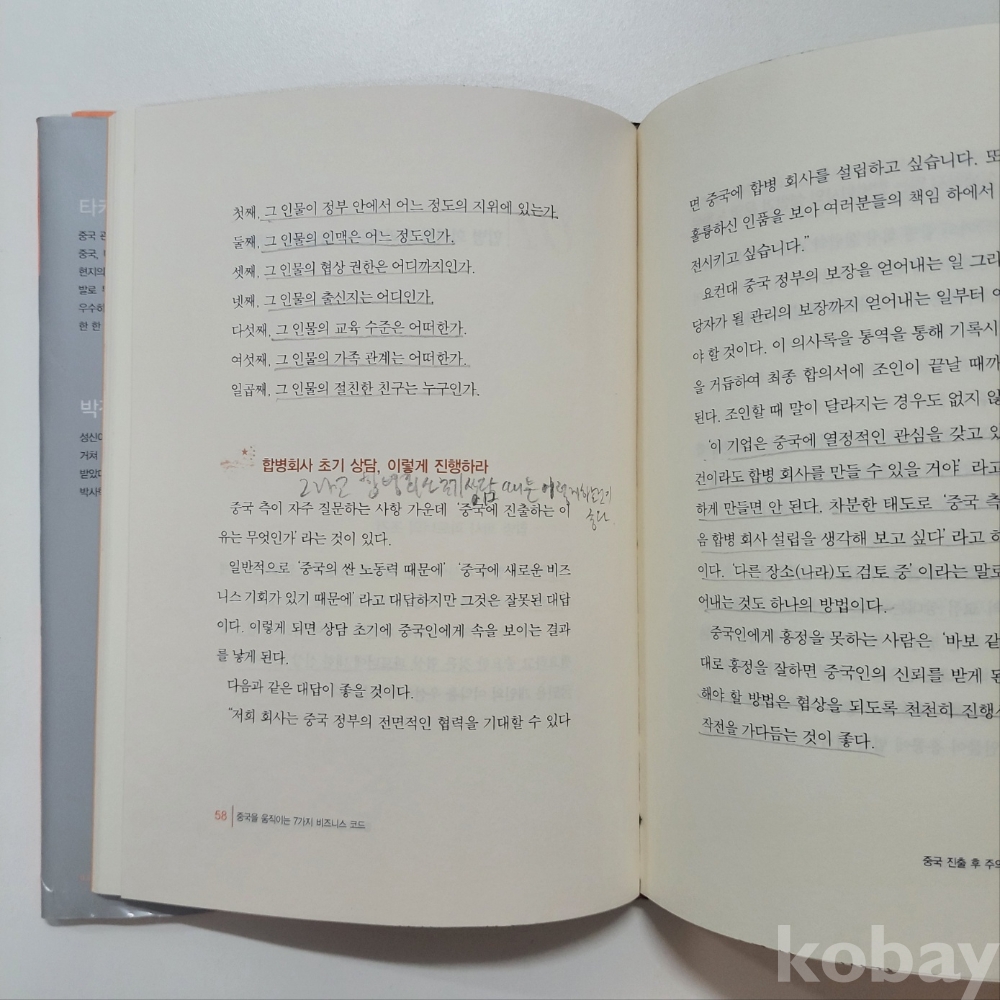 타카
중국 관
중국,
현지의
발로
우수하
한 한
박
성신여
거쳐
받았다
박사
첫째, 그 인물이 정부 안에서 어느 정도의 지위에 있는가.
둘째, 그 인물의 인맥은 어느 정도인가.
셋째, 그 인물의 협상 권한은 어디까지인가.
넷째, 그 인물의 출신지는 어디인가.
다섯째, 그 인물의 교육 수준은 어떠한가.
여섯째, 그 인물의 가족 관계는 어떠한가.
일곱째, 그 인물의 절친한 친구는 누구인가.
합병회사 초기 상담, 이렇게 진행하라
그리고 합병회사 초기 상담 때는 이렇게 하면이
좋다.
중국 측이 자주 질문하는 사항 가운데 '중국에 진출하는 이
유는 무엇인가' 라는 것이 있다.
일반적으로 '중국의 싼 노동력 때문에' '중국에 새로운 비즈
니스 기회가 있기 때문에' 라고 대답하지만 그것은 잘못된 대답
이다. 이렇게 되면 상담 초기에 중국인에게 속을 보이는 결과
를 낳게 된다.
다음과 같은 대답이 좋을 것이다.
"저희 회사는 중국 정부의 전면적인 협력을 기대할 수 있다
58 중국을 움직이는 7가지 비즈니스 코드
면 중국에 합병 회사를 설립하고 싶습니다. 또
훌륭하신 인품을 보아 여러분들의 책임 하에서
전시키고 싶습니다."
요컨대 중국 정부의 보장을 얻어내는 일 그리
당자가 될 관리의 보장까지 얻어내는 일부터 이
야 할 것이다. 이 의사록을 통역을 통해 기록시
을 거듭하여 최종 합의서에 조인이 끝날 때까
된다. 조인할 때 말이 달라지는 경우도 없지 않
'이 기업은 중국에 열정적인 관심을 갖고 있
건이라도 합병 회사를 만들 수 있을 거야' 라고
하게 만들면 안 된다. 차분한 태도로 '중국 측
음 합병 회사 설립을 생각해 보고 싶다' 라고 하
이다. '다른 장소(나라)도 검토 중' 이라는 말로
어내는 것도 하나의 방법이다.
중국인에게 흥정을 못하는 사람은 '바보 같
대로 흥정을 잘하면 중국인의 신뢰를 받게 된
해야 할 방법은 협상을 되도록 천천히 진행시
작전을 가다듬는 것이 좋다.
중국 진출 후 주의
kobay